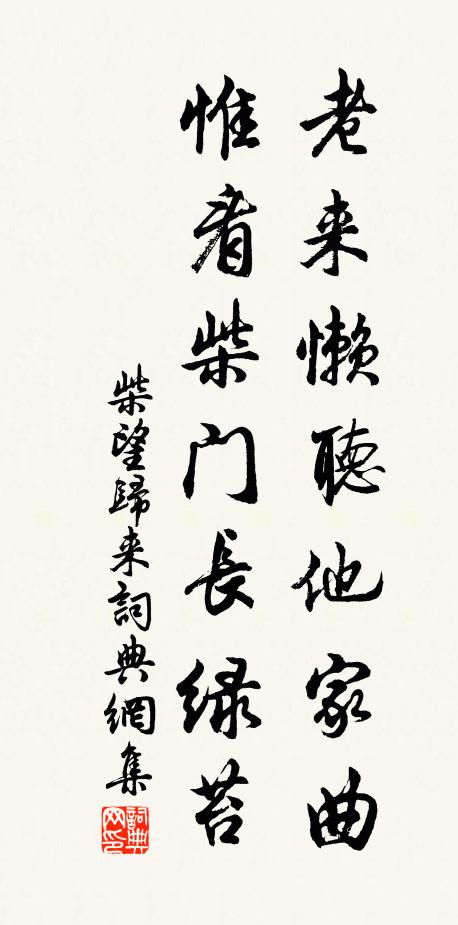 老来懒聽他家曲
惟看柴门長绿苔
柴望歸来詞典網集
詞典网印